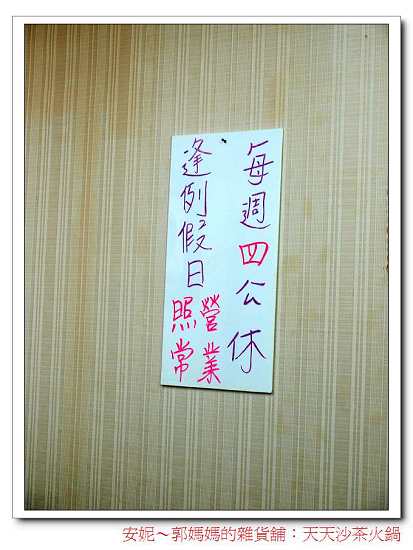 每週四公休
逢例假日
照常
營業
安妮～郭媽媽的雜貨舖：天天沙茶火鍋